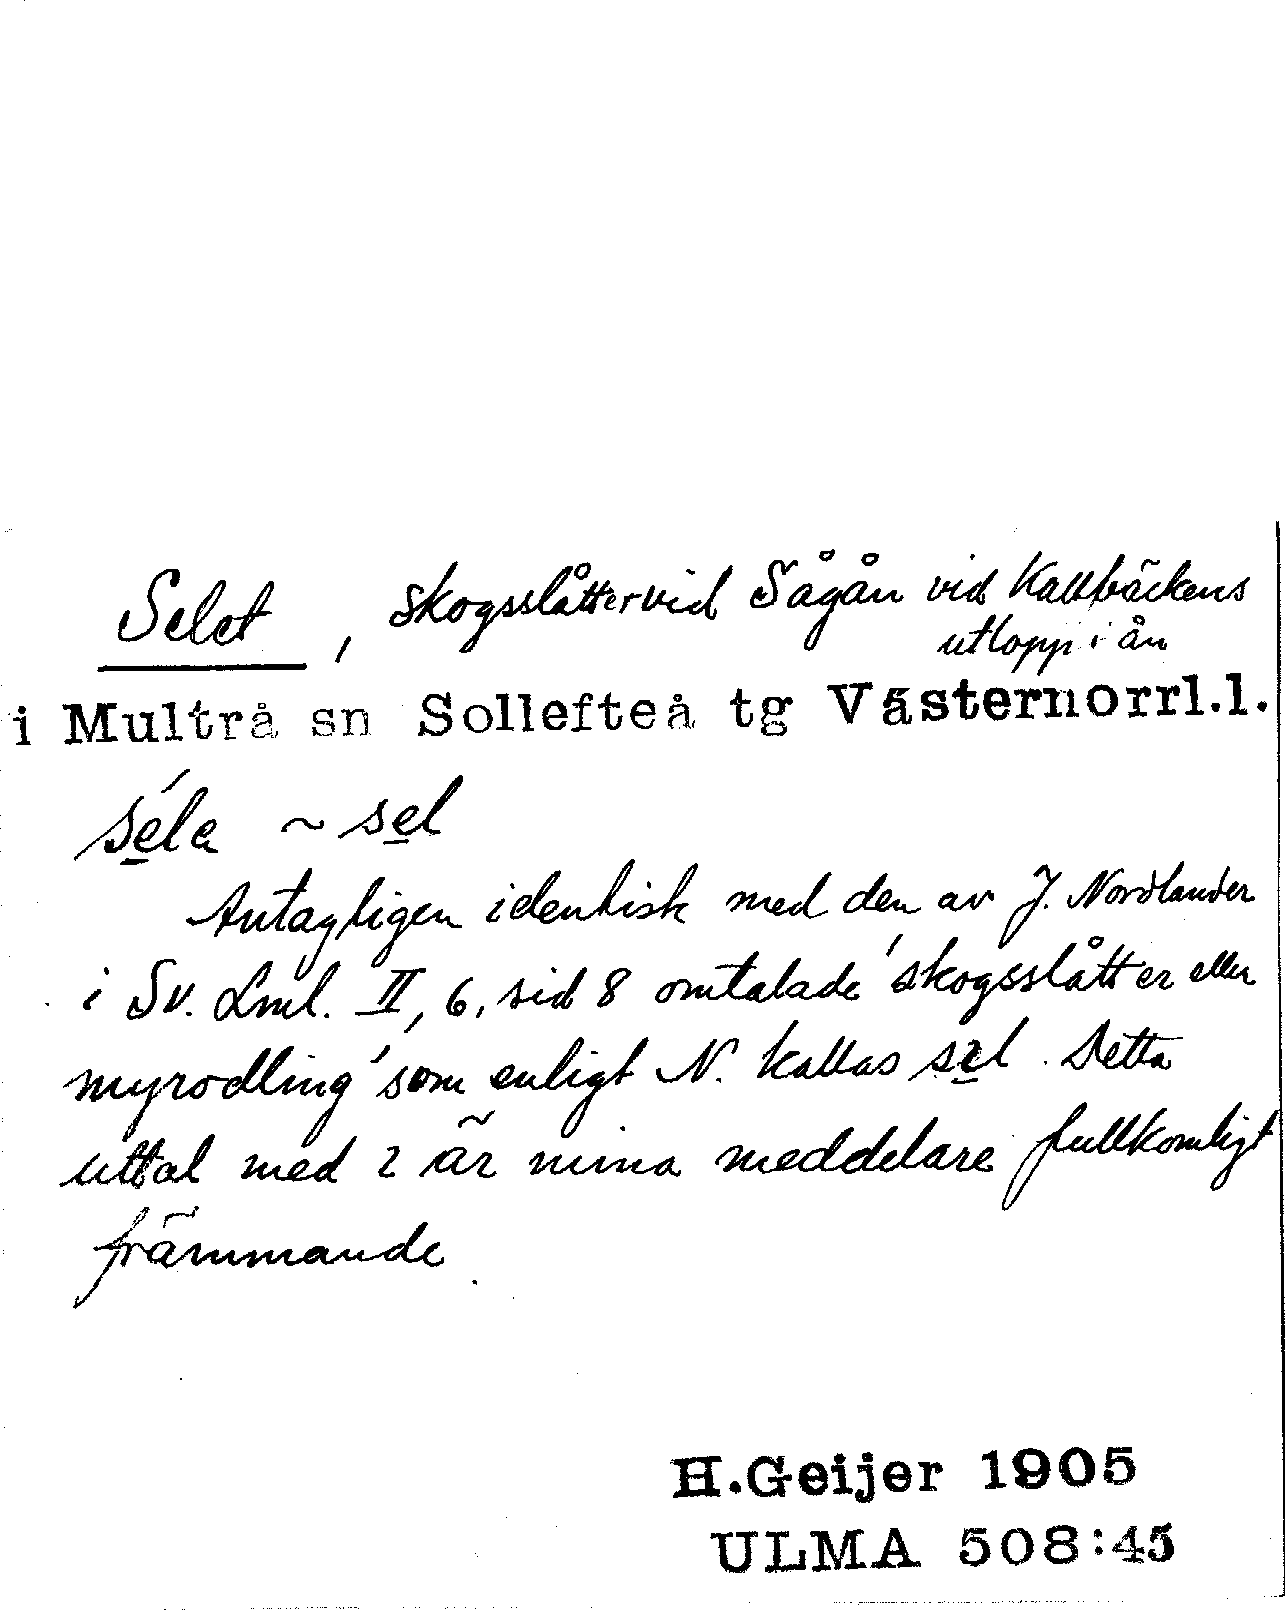 Selet, skogsslåtter vid Sågån vid Kallbäckens
utlopp i ån
i Multrå sn Sollefteå tg Västernorrl.l.
séla ~ sel
Antagligen identisk med den av J. Nordlander
i Sv. Lml. II, 6, sid 8 omtalade 'skogsslåtter eller
myrodling' som enligt N. kallas sɛl. Detta
uttal med ɛ är mina meddelare fullkomligt
främmande.
H.Geijer 1905
ULMA 508:45